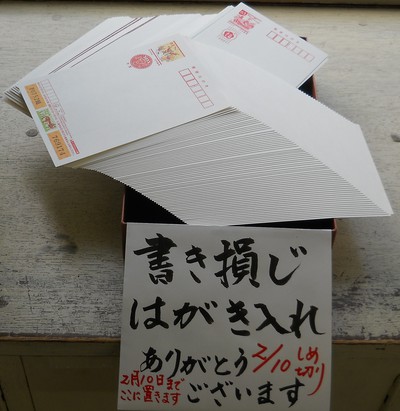 書き損じ
はがき入れ
ありがとう
ございます
2/10しめ切り
2月10日まで
ここに置きます